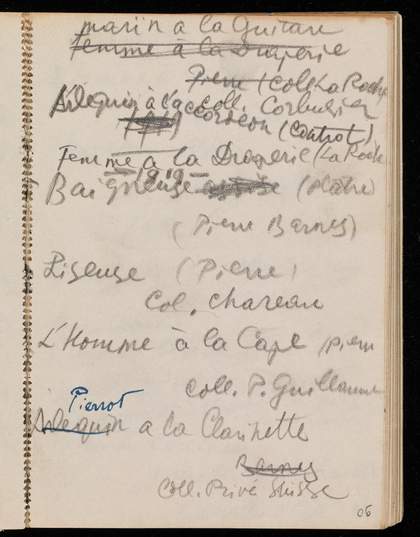 marin a la Guitare
femme à la Draperie
Pierre (Coll. La Roche
coll. Corbusier
Arlequin à l'accordéon (Controt)
Femme a la Draperie (La Roche
1919 —
Baigneuse (Plâtre)
(Pierre Barnes)
Liseuse (Pierre)
Col. Chareau
L'Homme à la Cape (Pierre
coll. P. Guillaume
Pierrot
Arlequin a la Clarinette
Barnes
Coll. Privé Suisse
06